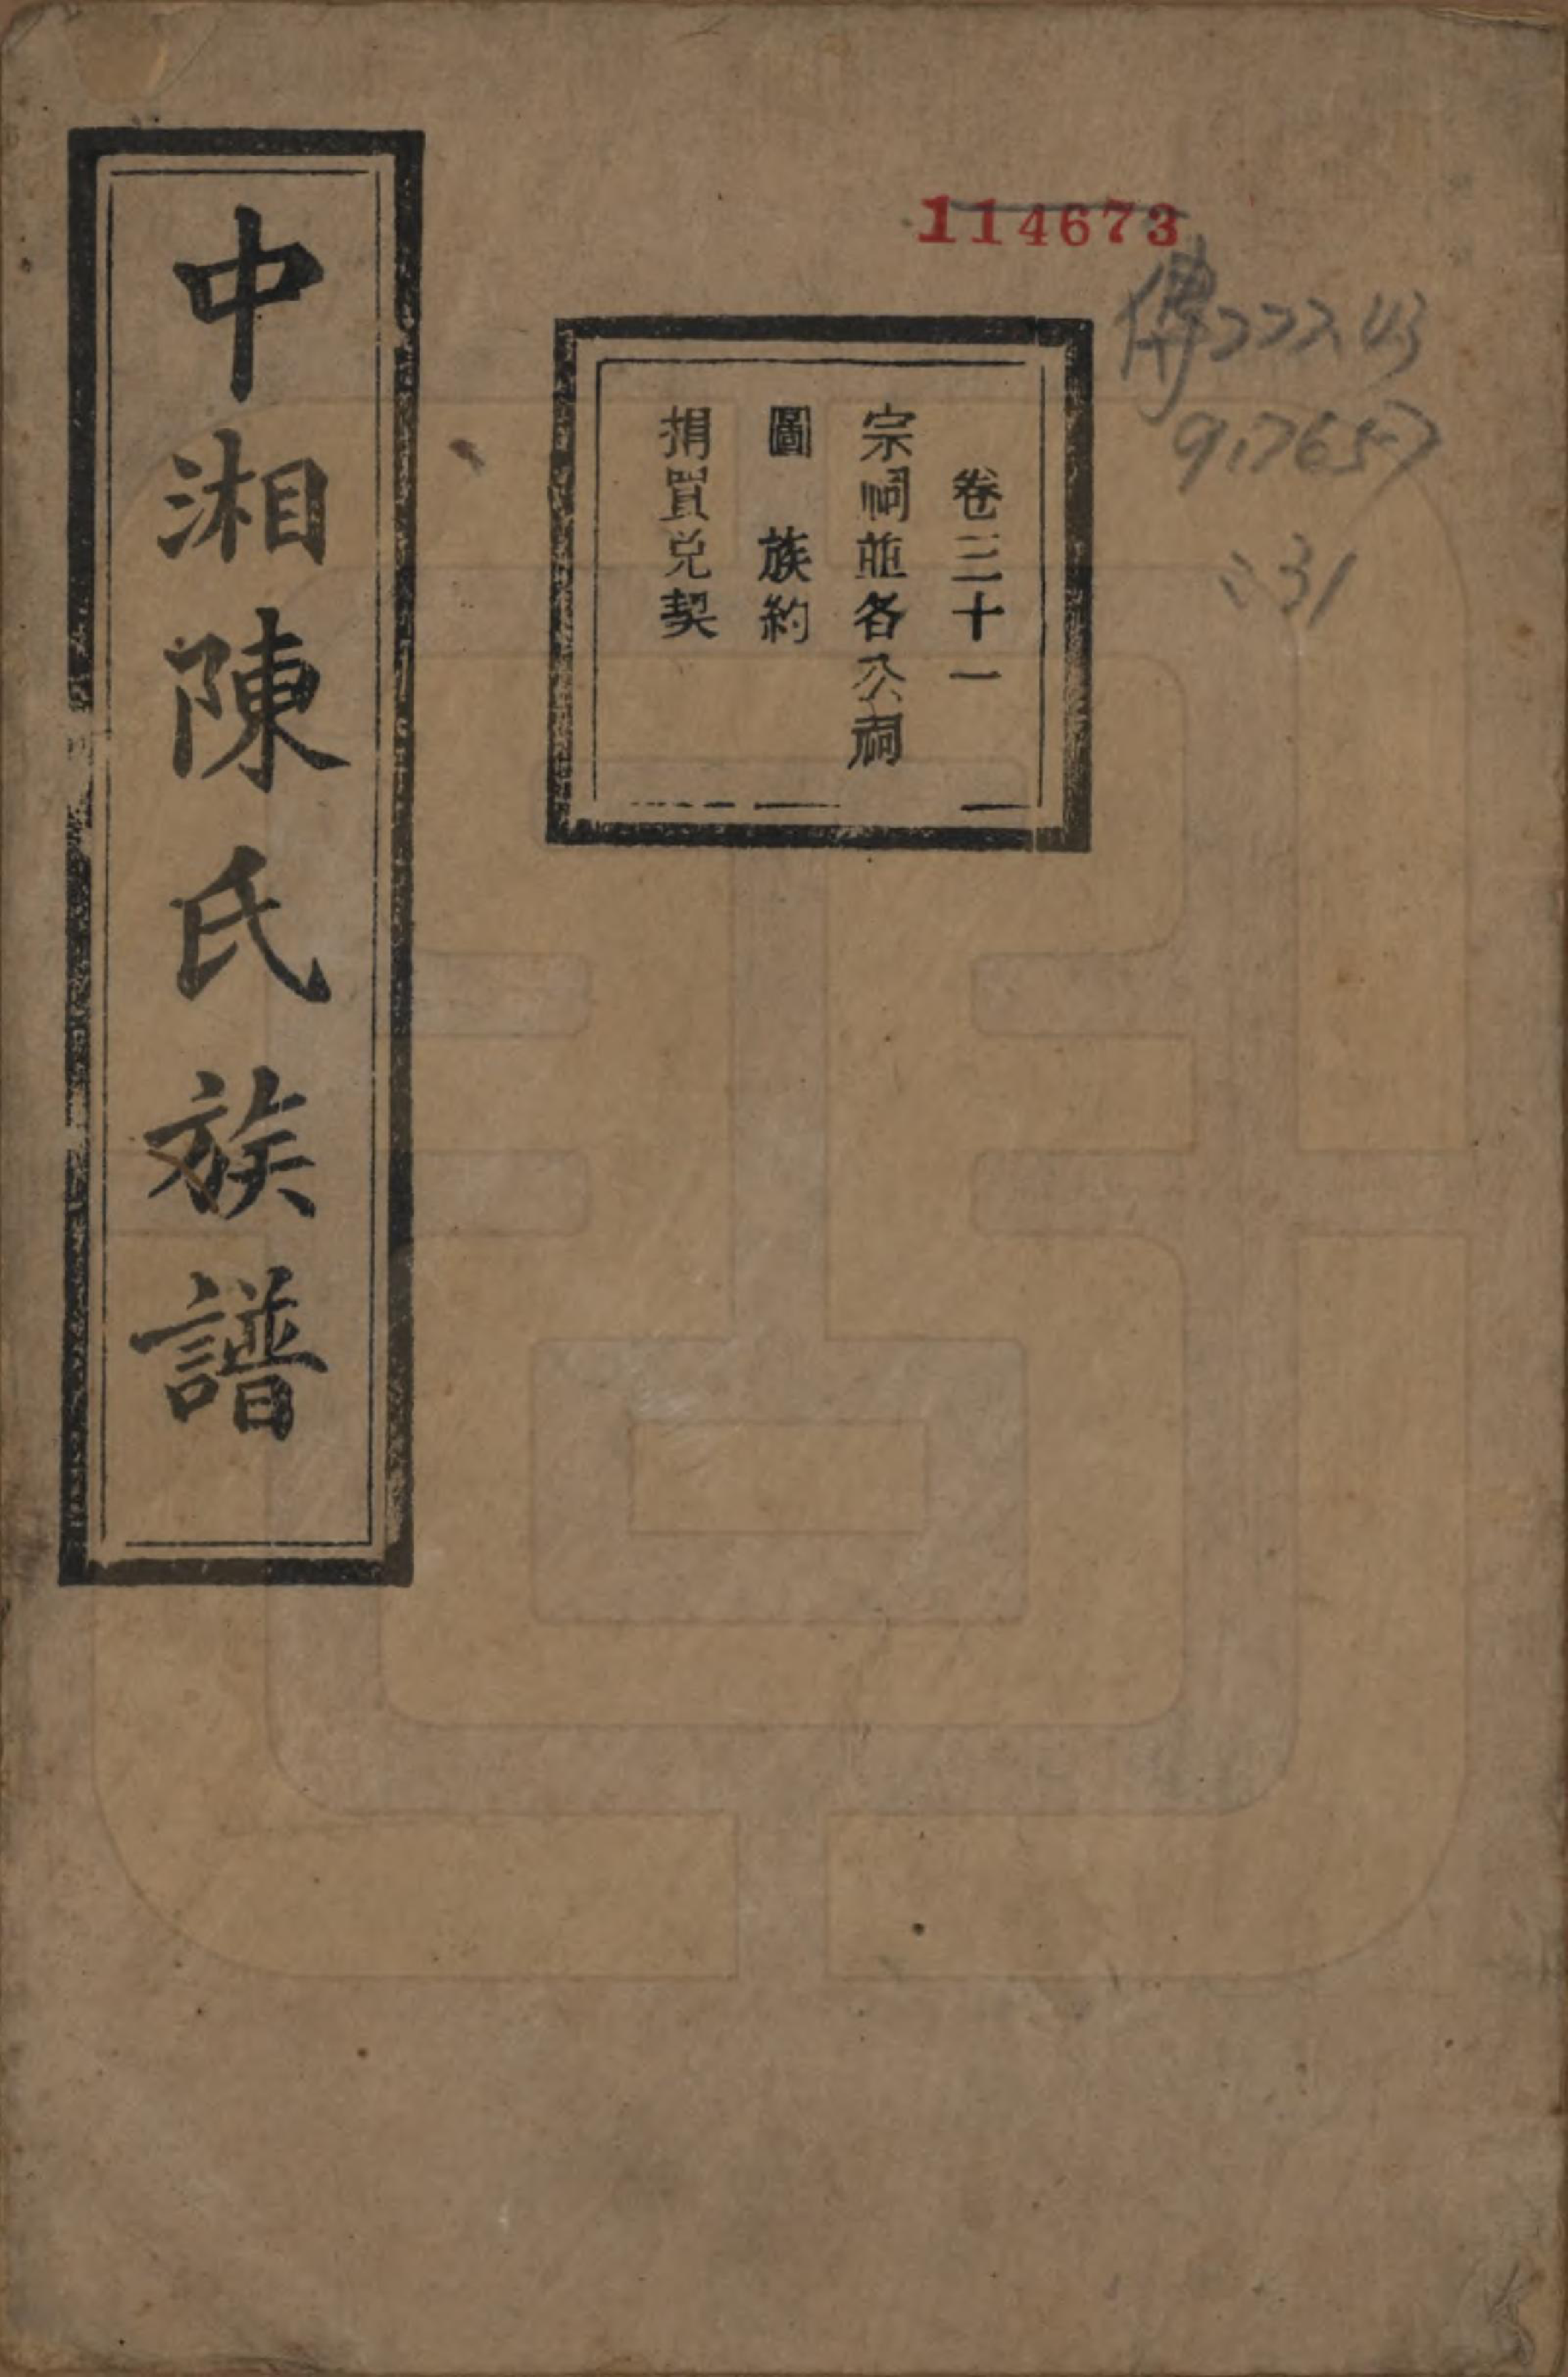 114673
傳222.43
917657
:31
卷三十一
宗祠並各公祠
圖　族約
捐買兑契
中湘陳氏族譜